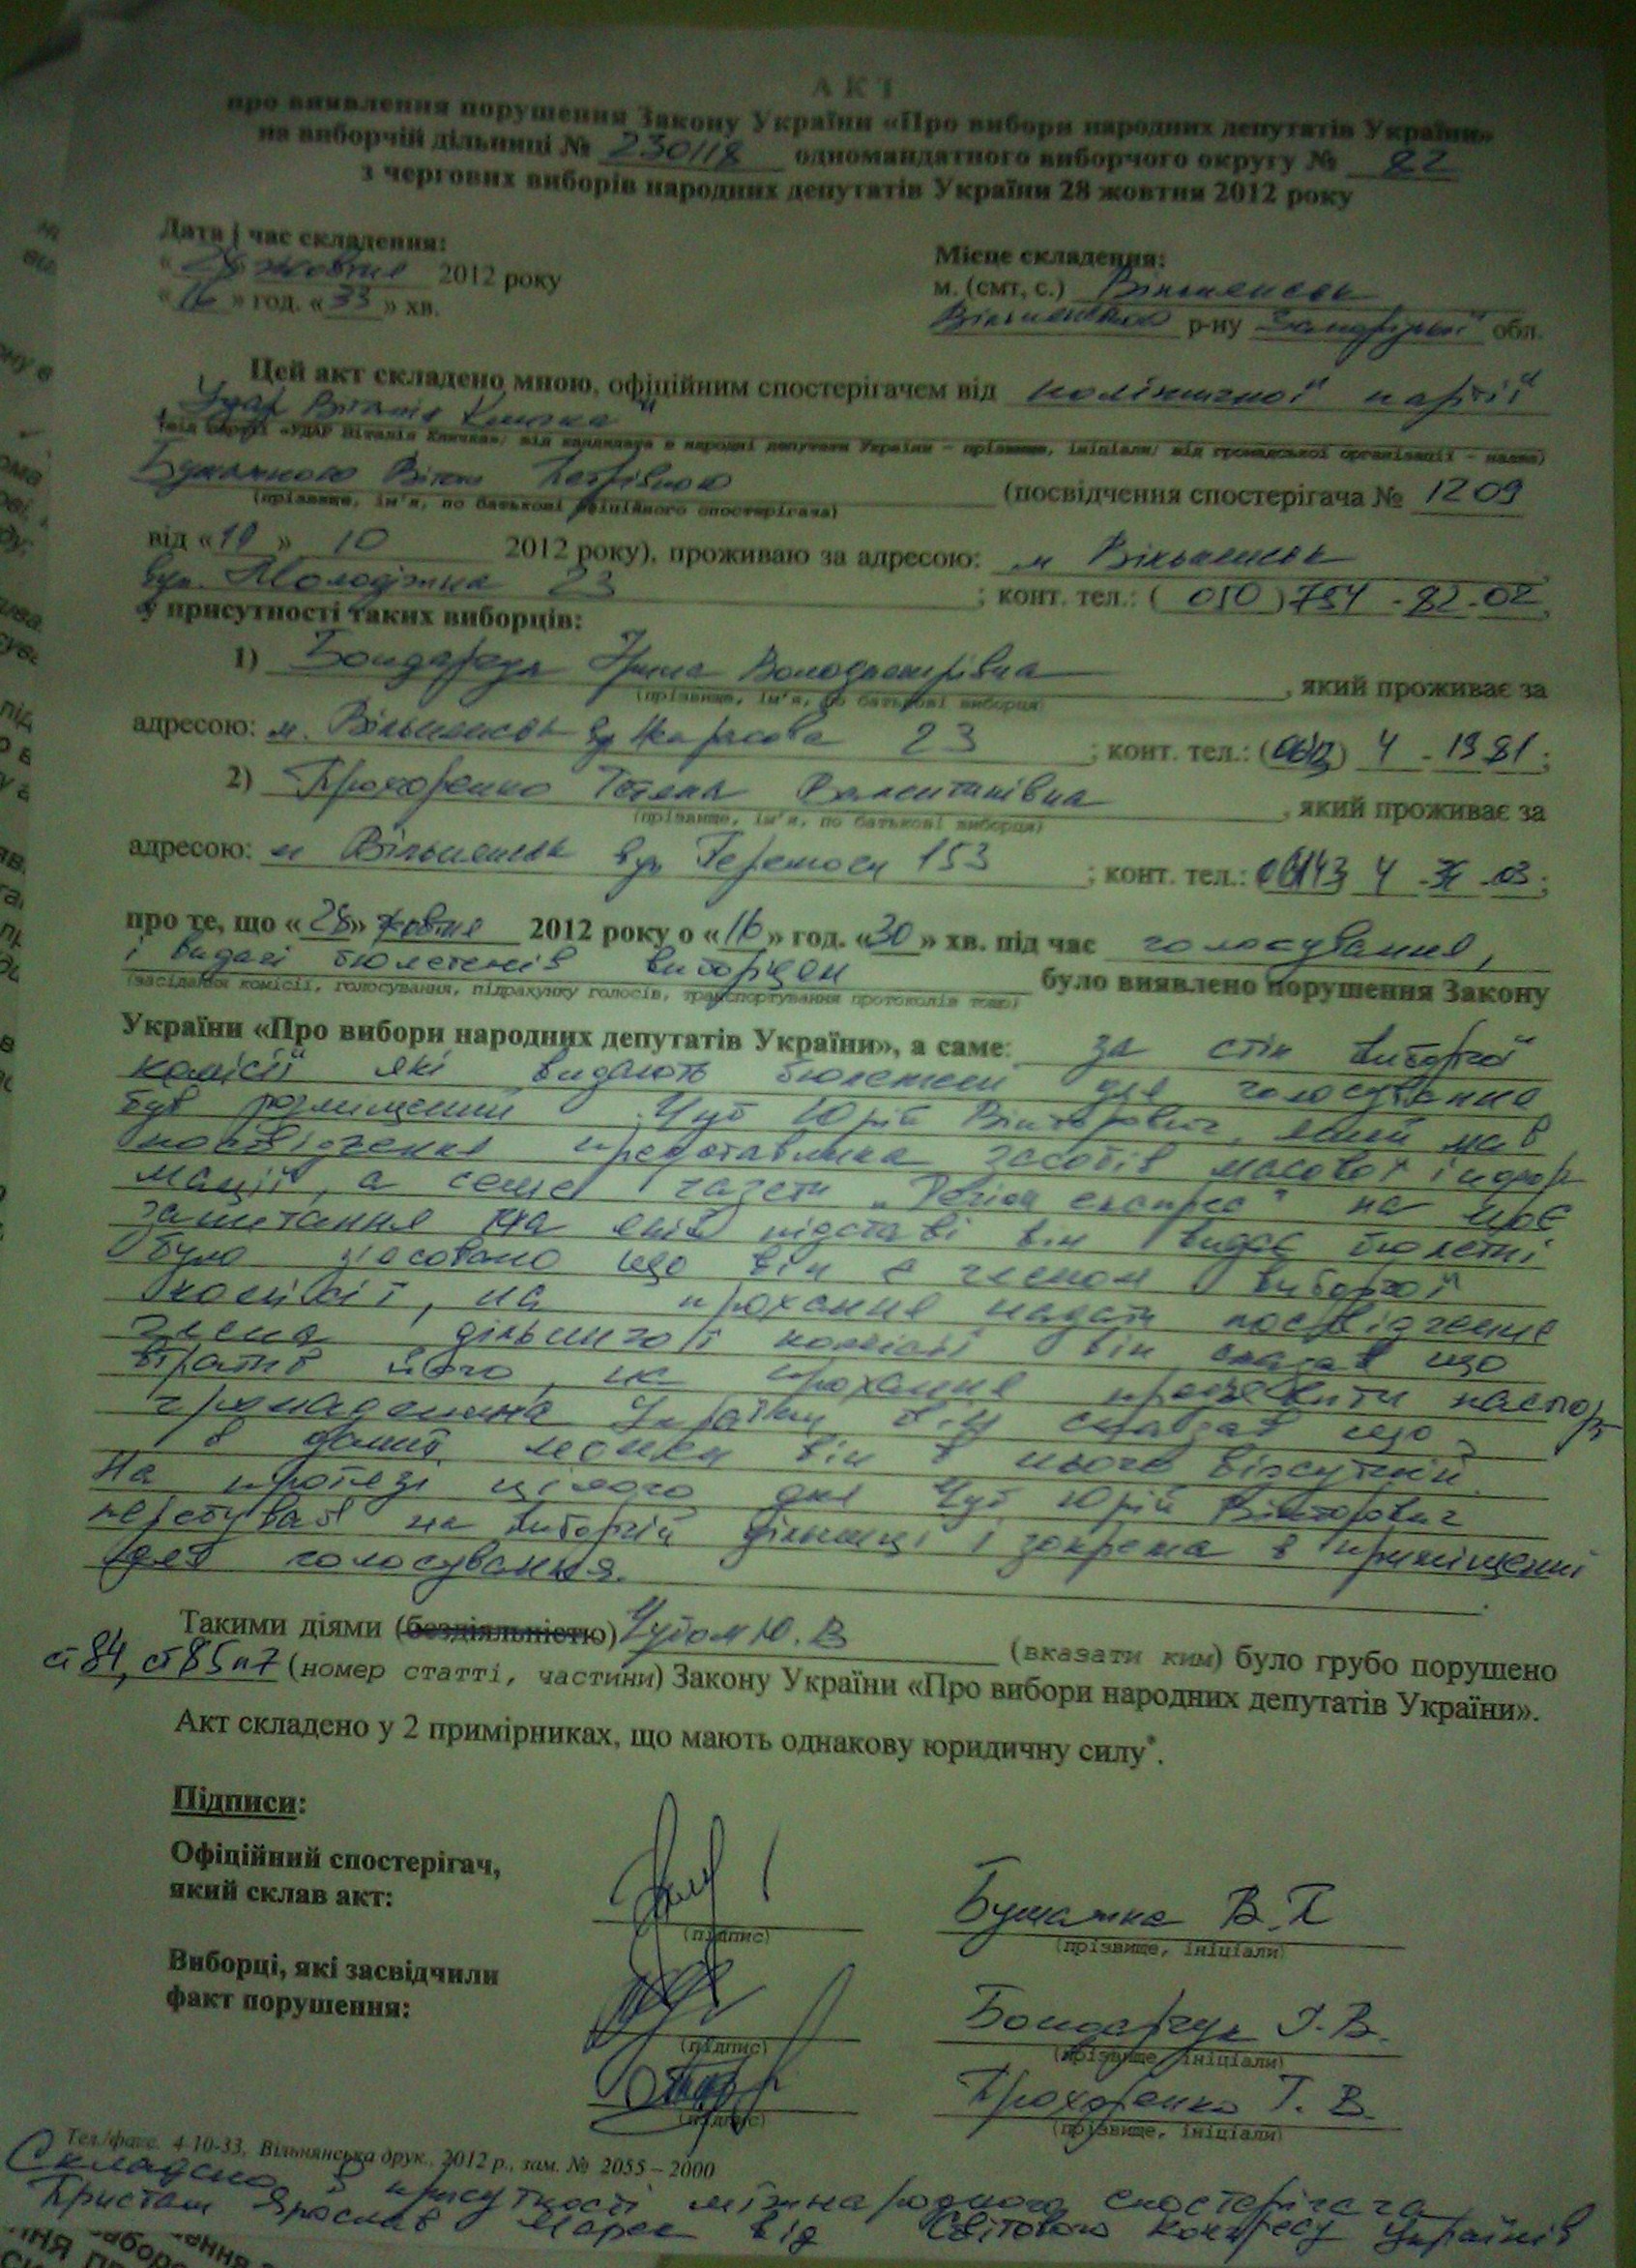 АКТ
про виявлення порушення Закону України «Про вибори народних депутатів України»
на виборчій дільниці № 230118 одномандатного виборчого округу № 82
з чергових виборів народних депутатів України 28 жовтня 2012 року
Дата і час складення:
« 28 жовтня 2012 року
« 16 » год. « 33 » хв.
Місце складення:
м. (смт, с.) Вільнянськ
р-ну обл.
Цей акт складено мною, офіційним спостерігачем від політичної партії
Удар Віталія Кличка
(посвідчення спостерігача № 1209
від «19» 10 2012 року), проживаю за адресою: м Вільнянськ
вул. Молодіжна 23 ; конт. тел.: (050) 754-82-02
у присутності таких виборців:
1) Бондарчук Ірина Володимирівна , який проживає за
(прізвище, ім'я, по батькові виборця)
адресою: м. Вільнянськ 23 ; конт. тел.: 4-1981;
2) Прохоренко Тетяна Валентинівна , який проживає за
(прізвище, ім'я, по батькові виборця)
адресою: м Вільнянськ вул 153 ; конт. тел.: 4
про те, що «28» жовтня 2012 року о «16» год. «30» хв. під час голосування,
і видачі бюлетенів виборцям було виявлено порушення Закону
(засідання комісії, голосування, підрахунку голосів, транспортування протоколів тощо)
України «Про вибори народних депутатів України», а саме: за стіл виборчої
комісії які видають бюлетені для голосування
був розміщений Чуб Юрій Вікторович, який мав
посвідчення представника засобів масової інфор
мації, а саме газети на моє
запитання на якій підставі він видає бюлетні
було що він є членом виборчої
комісії, на прохання надати посвідчення
члена дільничої комісії він сказав що
втратив його, на прохання паспорт
громадянина України він сказав що
в даний він в нього відсутній.
На протязі цілого дня Чуб Юрій Вікторович
перебував на виборчій дільниці і зокрема в приміщенні
для голосування.
Такими діями (бездіяльністю) Чубом Ю.В (вказати ким) було грубо порушено
ст 84, ст 85 п7 (номер статті, частини) Закону України «Про вибори народних депутатів України».
Акт складено у 2 примірниках, що мають однакову юридичну силу*.
Підписи:
Офіційний спостерігач,
який склав акт:
(підпис)
В.
(прізвище, ініціали)
Виборці, які засвідчили
факт порушення:
(підпис)
Бондарчук І.В.
(прізвище, ініціали)
(підпис)
Прохоренко Т.В.
(прізвище, ініціали)
Тел./факс. 4-10-33, Вільнянська друк., 2012 р., зам. № 2055 – 2000
Складено в присутності міжнародного спостерігача
від Світового конгресу Українців